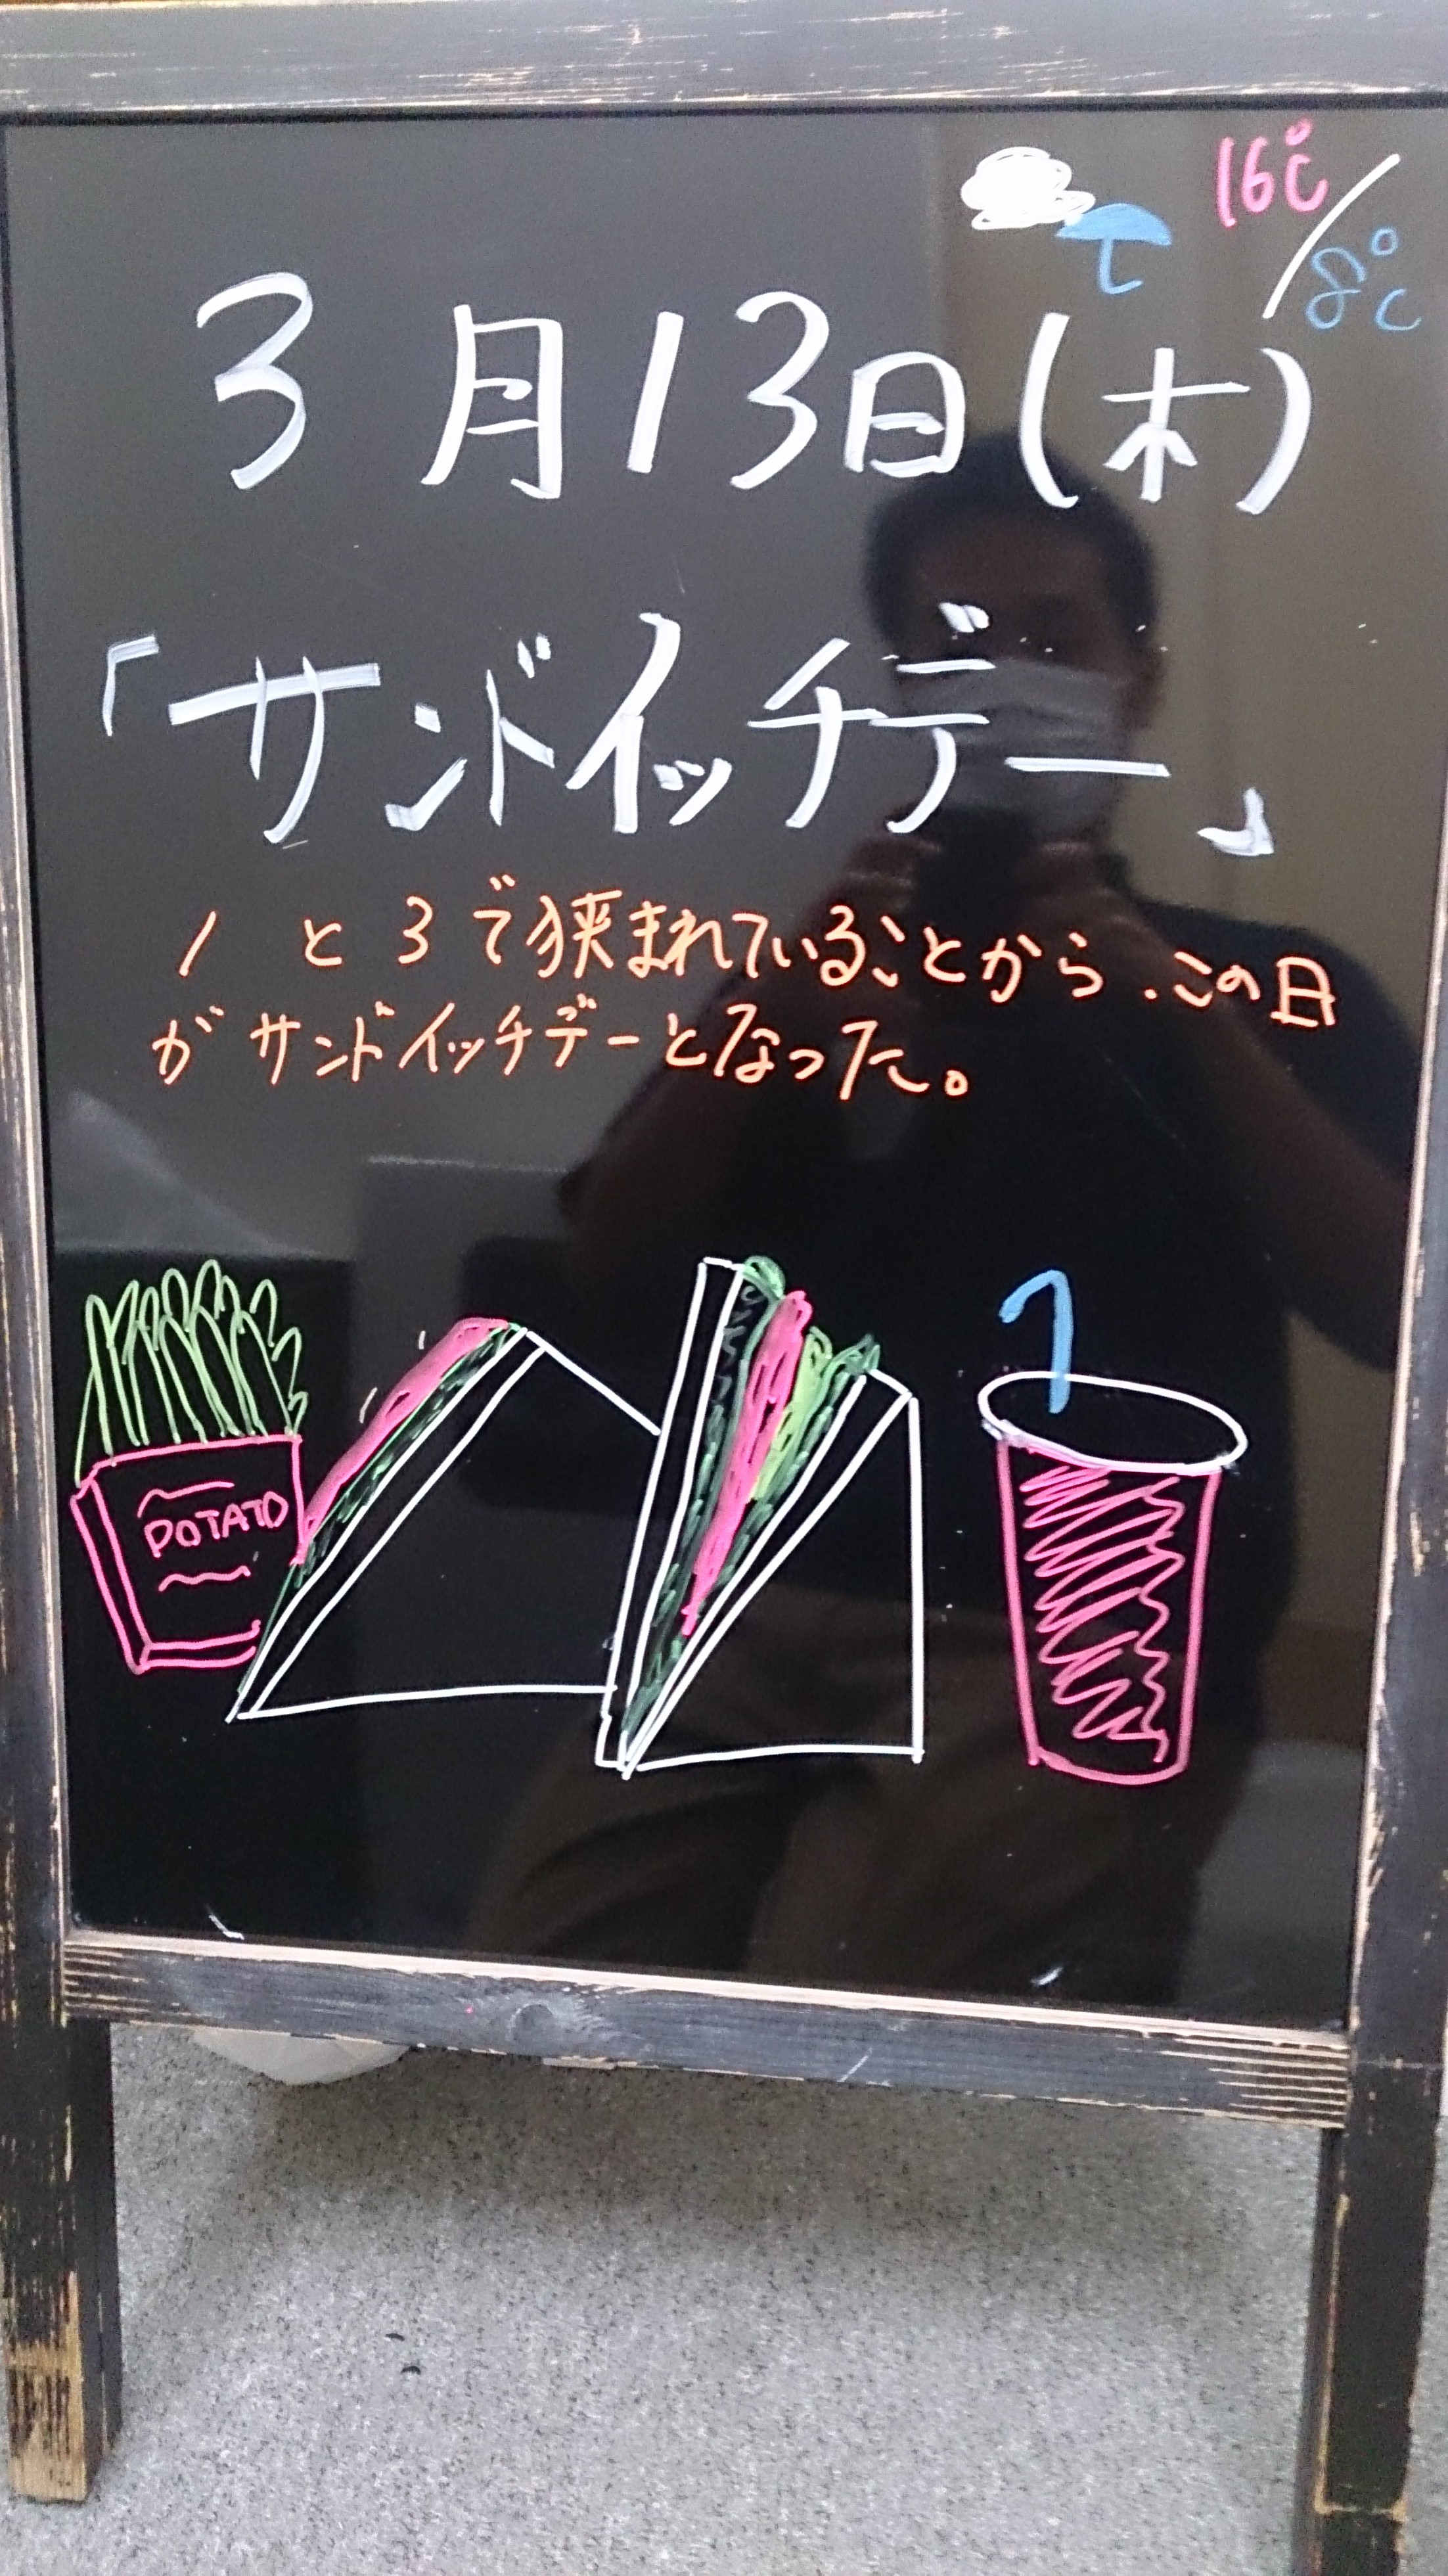 16℃/8℃
3月13日(木)
「サンドイッチデー」
1と3で狭まれていることから、この日
がサンドイッチデーとなった。
POTATO